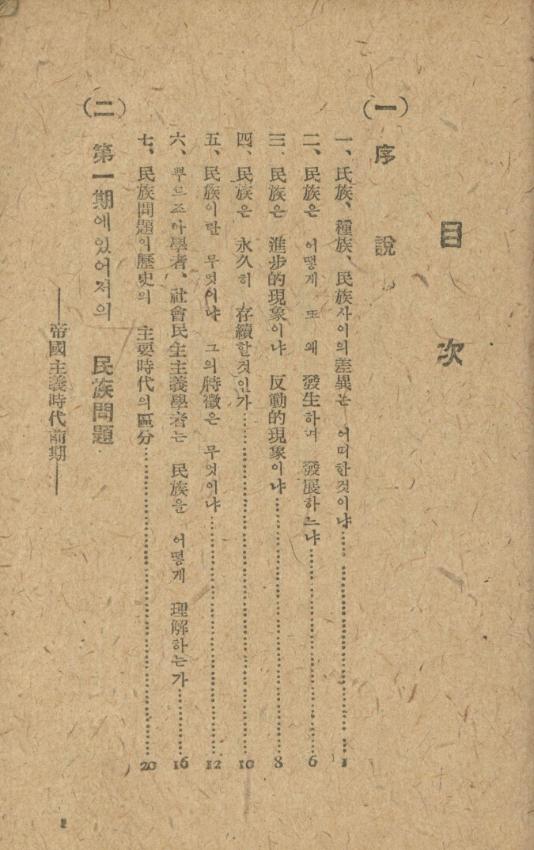 目次
(一) 序說
一、氏族、種族、民族사이의差異는 어떠한것이냐……1
二、民族은 어떻게 또 왜 發生하며 發展하느냐……6
三、民族은 進步的現象이냐 反動的現象이냐……8
四、民族은 永久히 存續할것인가……10
五、民族이란 무엇이냐 그의特徵은 무엇이냐……12
六、뿌르조아學者、社會民主主義學者는 民族을 어떻게 理解하는가……16
七、民族問題의歷史의 主要時代의區分……20
(二) 第一期에있어서의 民族問題
——帝國主義時代前期——